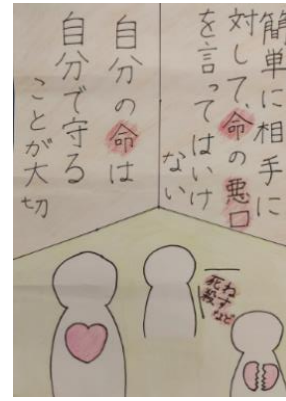 簡単に相手に
対して、命の悪口
を言ってはいけ
ない
自分の命は
自分で守る
ことが大切
死ね
殺す
など